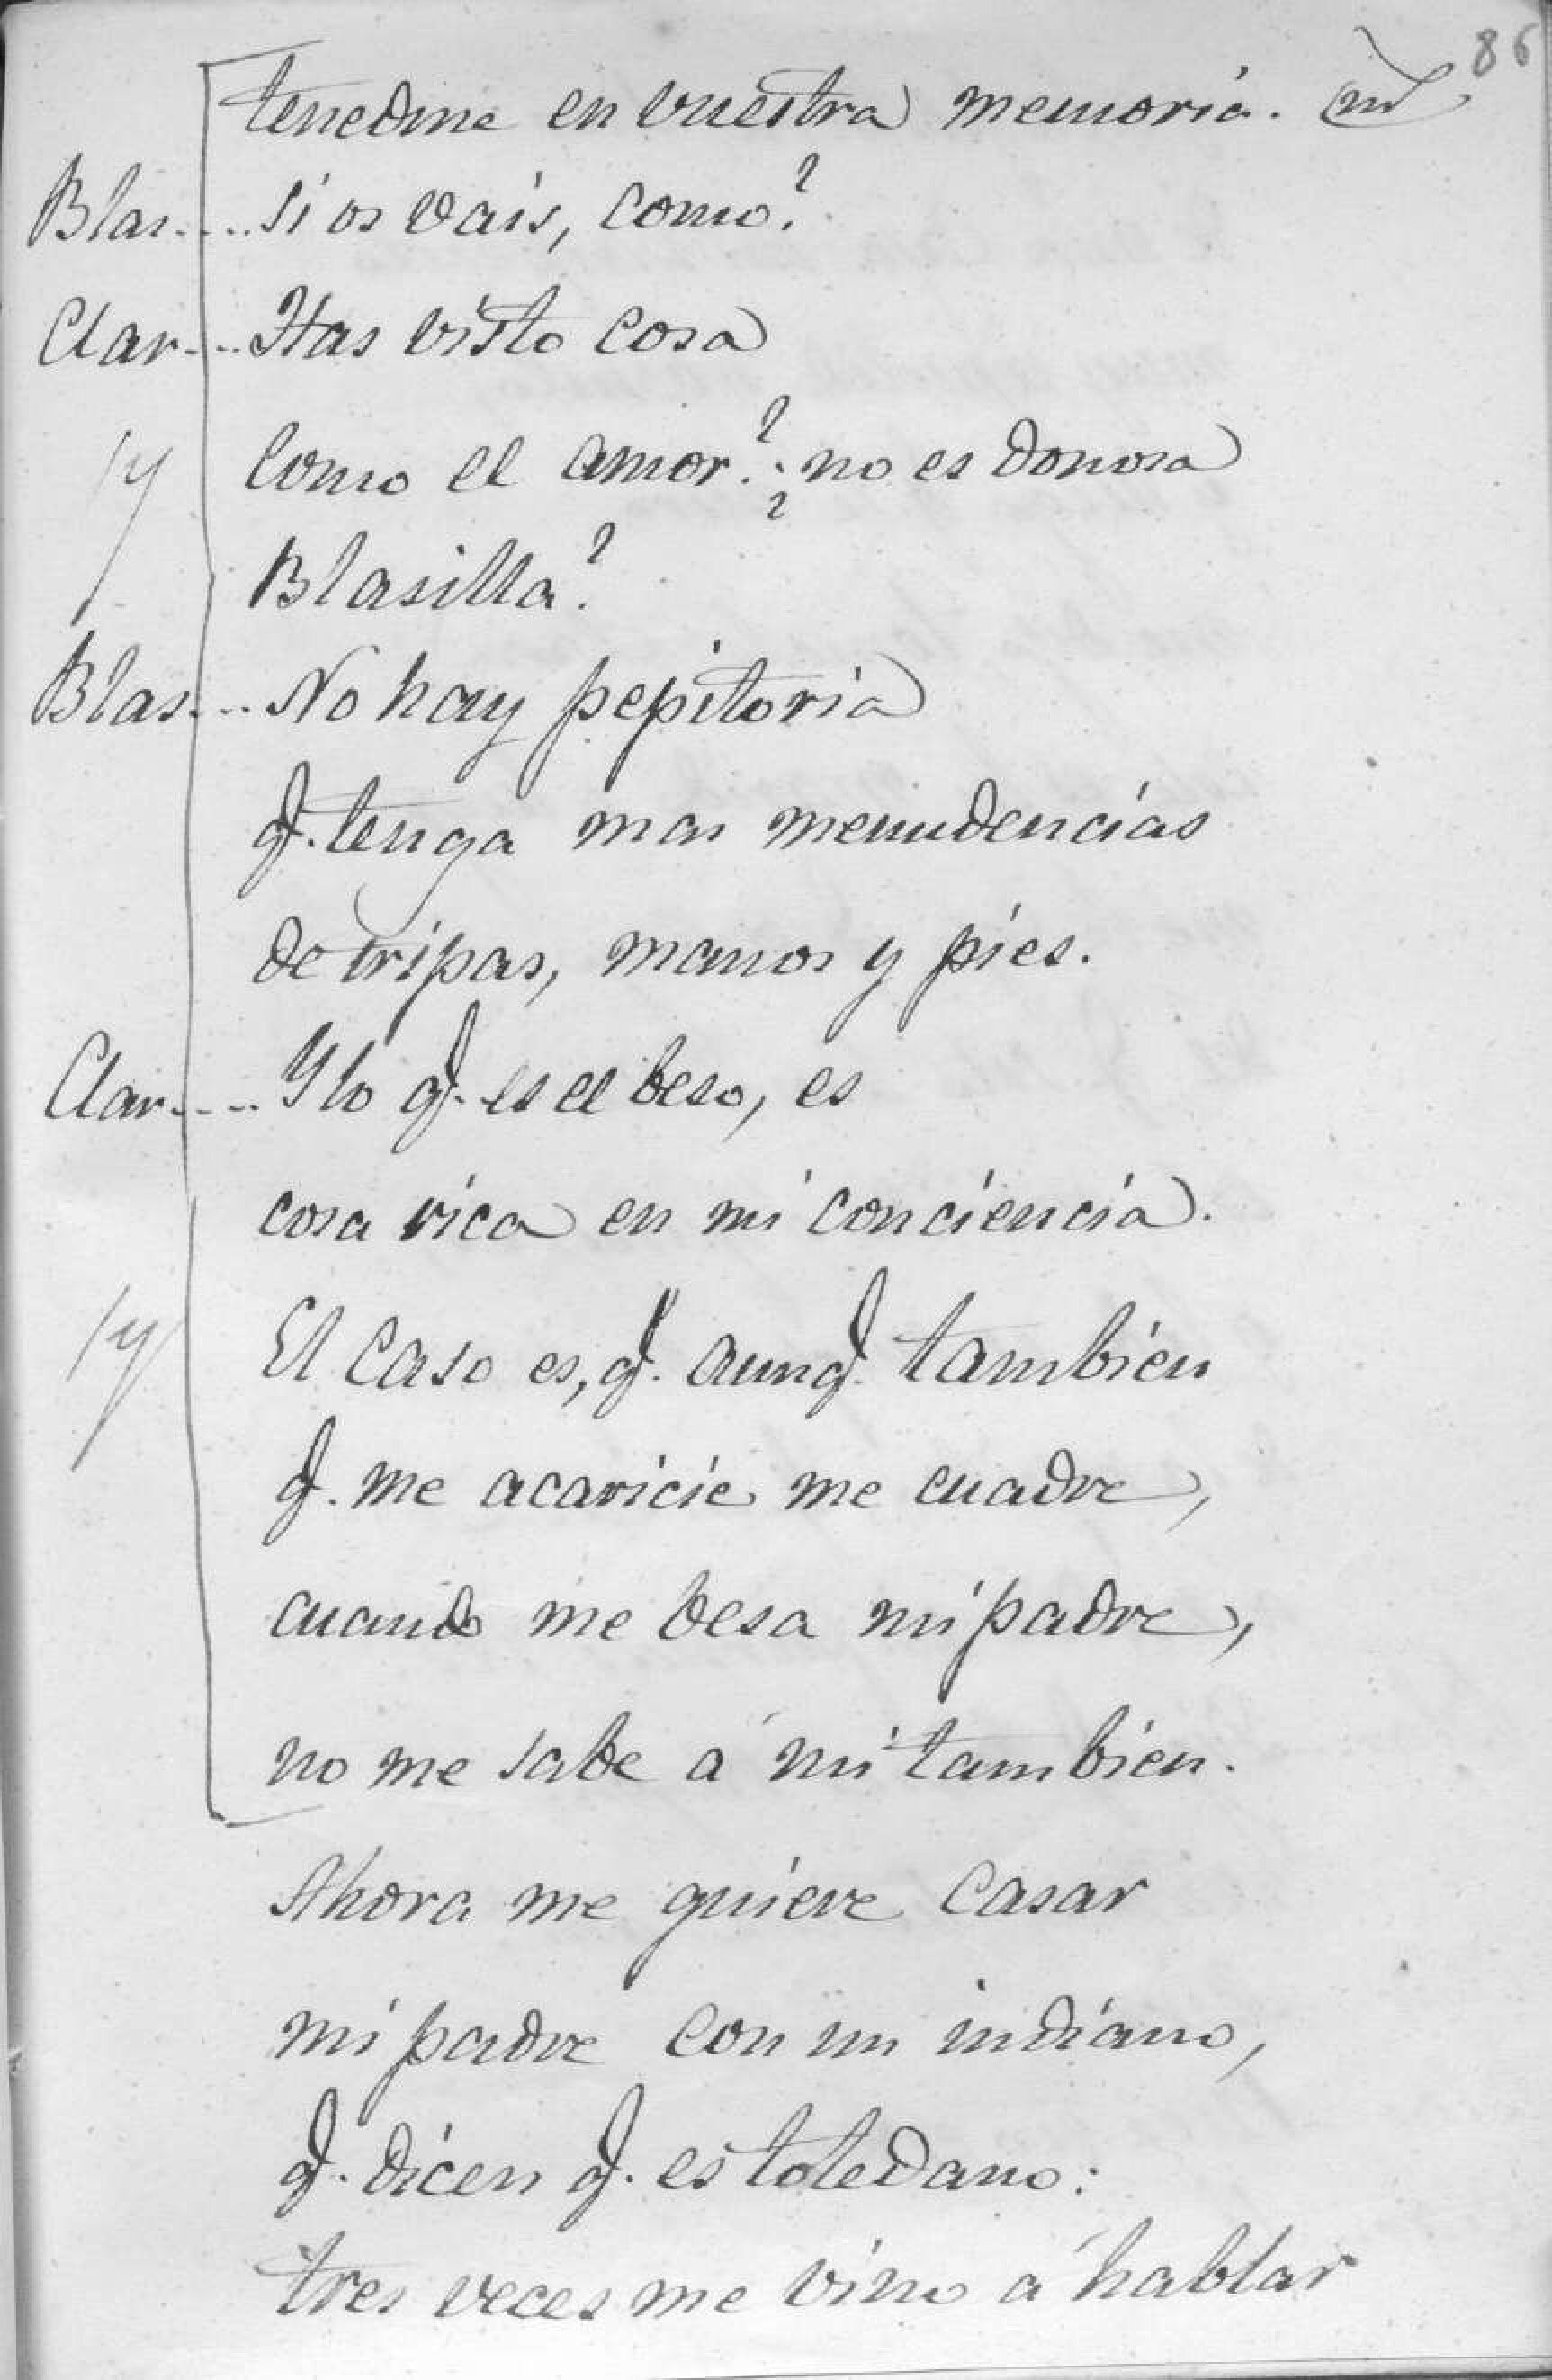 86
tenedme en vuestra memoria.
Blas.... si os vais, como?
Clar.... Has visto cosa
como el amor? ¿no es donosa
Blasilla?
Blas.... No hay pepitoria
q. tenga mas menudencias
de tripas, manos y pies.
Clar.... Y lo q. es el beso, es
cosa rica en mi conciencia.
El caso es, q. aunq. tambien
q. me acaricie me cuadre,
cuando me besa mi padre,
no me sabe á mi tambien.
Ahora me quiere casar
mi padre con un indiano,
q. dicen q. es toledano:
tres veces me vino á hablar